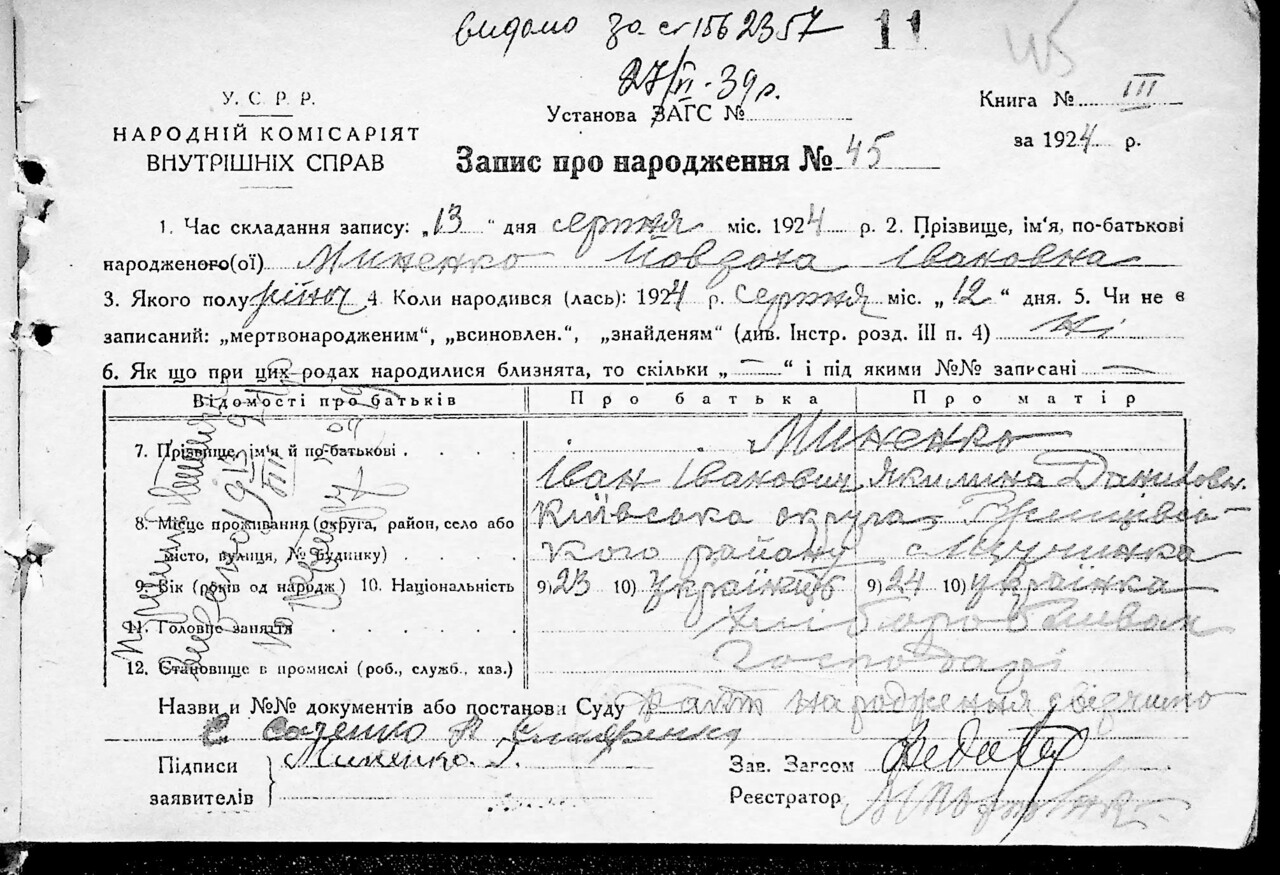 видано за ст 1562357
11
27/VI-39 р.
У. С. Р. Р.
НАРОДНІЙ КОМІСАРІЯТ
ВНУТРІШНІХ СПРАВ
Установа ЗАГС №
Книга № III
за 1924 р.
Запис про народження № 45
1. Час складання запису: „13“ дня серпня міс. 1924 р. 2. Прізвище, ім'я, по-батькові
народженого(ої) Миненко Йовдоха Івановна
3. Якого полу 4. Коли народився (лась): 1924 р. серпня міс. „12“ дня. 5. Чи не є
записаний: „мертвонародженим“, „всиновлен.“, „знайденям“ (див. Інстр. розд. III п. 4) Ні
6. Як що при цих родах народилися близнята, то скільки „—“ і під якими №№ записані —
Відомості про батьків Про батька Про матір
7. Прізвище, ім'я й по-батькові . . . . Миненко
Іван Іванович Якилина Даниловн.
8. Місце проживання (округа, район, село або Київська округа,
місто, вулиця, № будинку) . . . . кого району
9. Вік (років од народж) 10. Національність 9) 23 10) українець 9) 24 10) українка
11. Головне заняття . . . . .
12. Становище в промислі (роб., служб., хаз.) Господарі
Назви и №№ документів або постанови Суду факт народження
Підписи Миненко. І.
заявителів
Зав. Загсом
Реєстратор